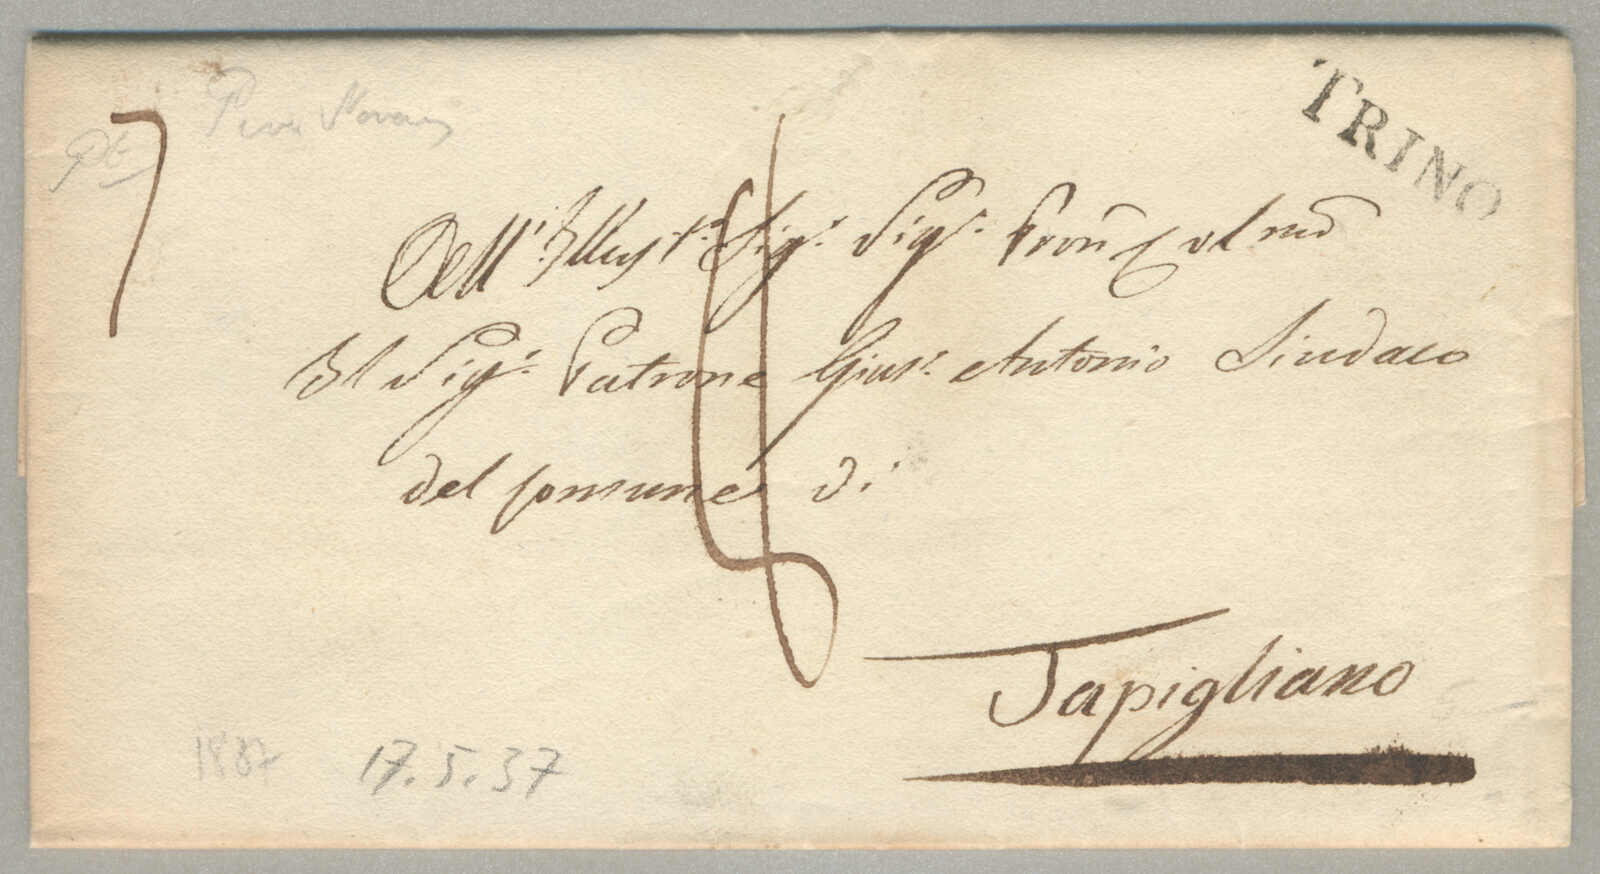 TRINO
7
Dell' Illust.° Sig.r Sig.r Pron Colmo
Il Sig.r Patrone Gius.e Antonio Sindaco
del Comune di
Tapigliano
1837 17.5.37